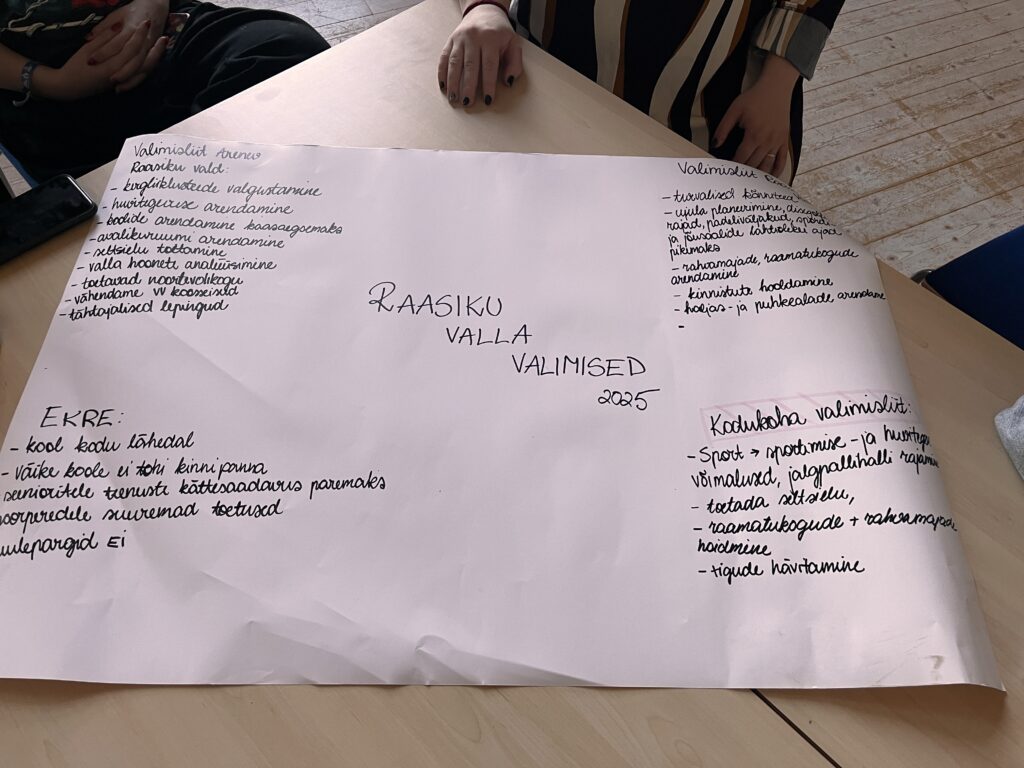 Valimisliit Arenev
Raasiku vald:
- kergliiklusteede valgustamine
- huvitegevuse arendamine
- koolide arendamine kaasaegsemaks
- avalikuruumi arendamine
- seltsielu toetamine
- valla hoonete analüüsimine
- toetavad noortevolikogu
- vähendame VV koosseisud
- tähtajalised lepingud
RAASIKU
VALLA
VALIMISED
2025
Valimisliit
- turvalised kõnniteed
- ujula planeerimine, discgolfi
rajad, padeliväljakud, spordi
ja jõusaalide lahtioleku ajad
pikemaks
- rahvamajade, raamatukogude
arendamine
- kinnistute hooldamine
- haljas- ja puhkealade arendamine
-
EKRE:
- kool kodu lähedal
- väike koole ei tohi kinni panna
seenioritele teenuste kättesaadavus paremaks
noorperedele suuremad toetused
tuulepargid EI
Kodukoha valimisliit:
- Sport → sportimise- ja huvitegevus
võimalused, jalgpallihalli rajamine
- toetada seltsielu,
- raamatukogude + rahvamajade
hoidmine
- tigude hävitamine